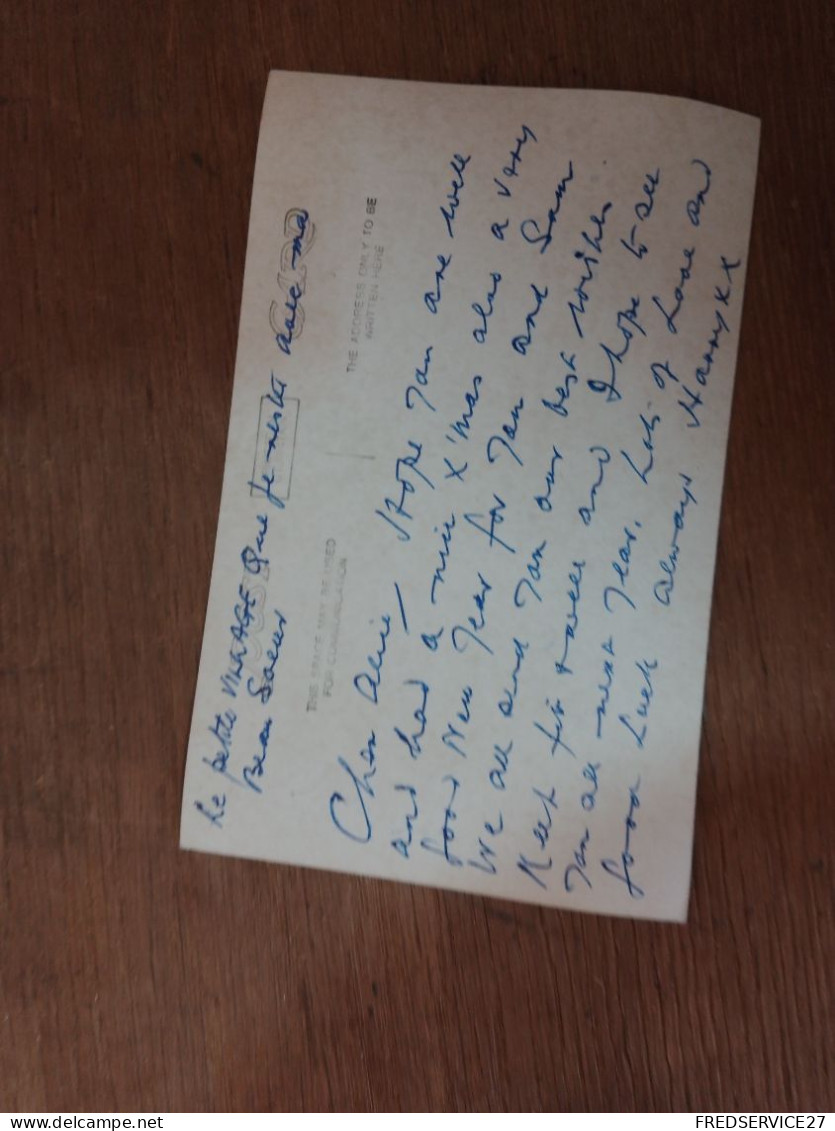 Le petite VILLAGE Que Je reste avec ma
Beau Soeur
POST CARD
THE SPACE MAY BE USED
FOR COMMUNICATION
THE ADDRESS ONLY TO BE
WRITTEN HERE
Cher I Hope You are well
and had a nice X'mas also a very
good New Year for You and Sam
We all send You our best wishes
Keep fit + well and I hope to see
You all next Year. Lots of Love and
good Luck always Harry XX
FREDSERVICE27